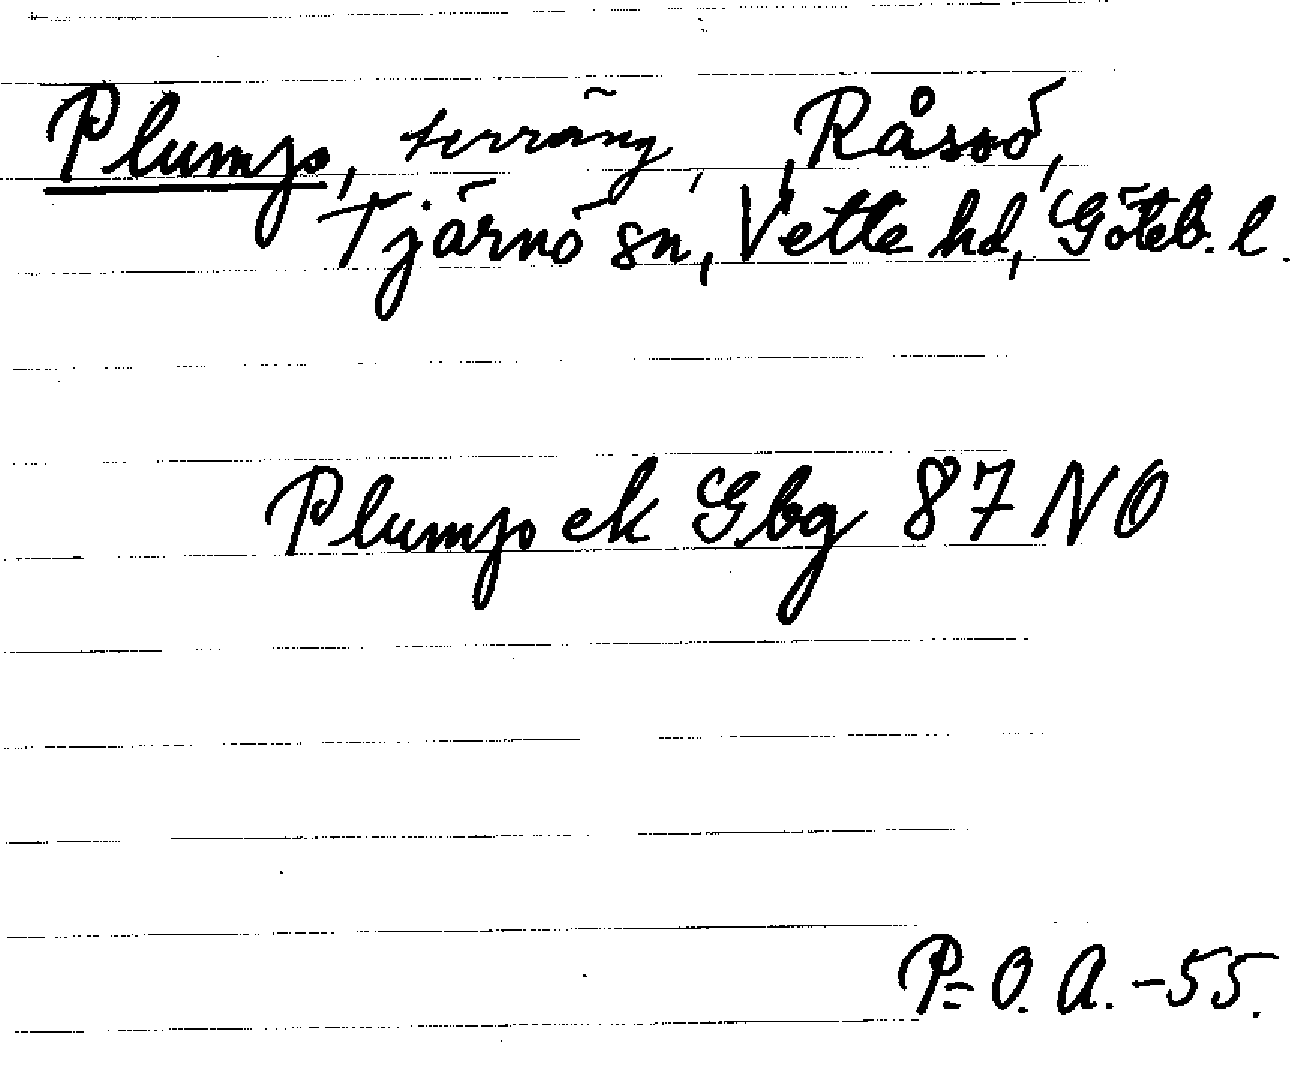 Plump, terräng, Råssö,
Tjärnö sn, Vette hd, Göteb. l.
Plump ek Gbg 87 NO
P=O. A. -55.